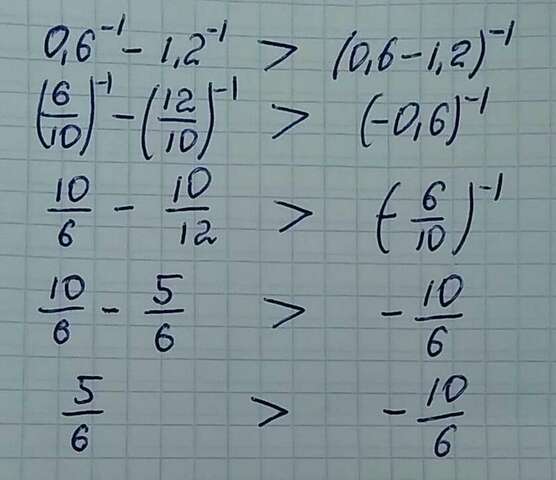 0,6⁻¹ − 1,2⁻¹ > (0,6 − 1,2)⁻¹
(6/10)⁻¹ − (12/10)⁻¹ > (−0,6)⁻¹
10/6 − 10/12 > (−6/10)⁻¹
10/6 − 5/6 > −10/6
5/6 > −10/6